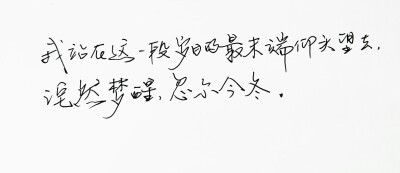 我站在这一段岁月的最末端仰头望去,
浑然梦醒,忽尔今冬.